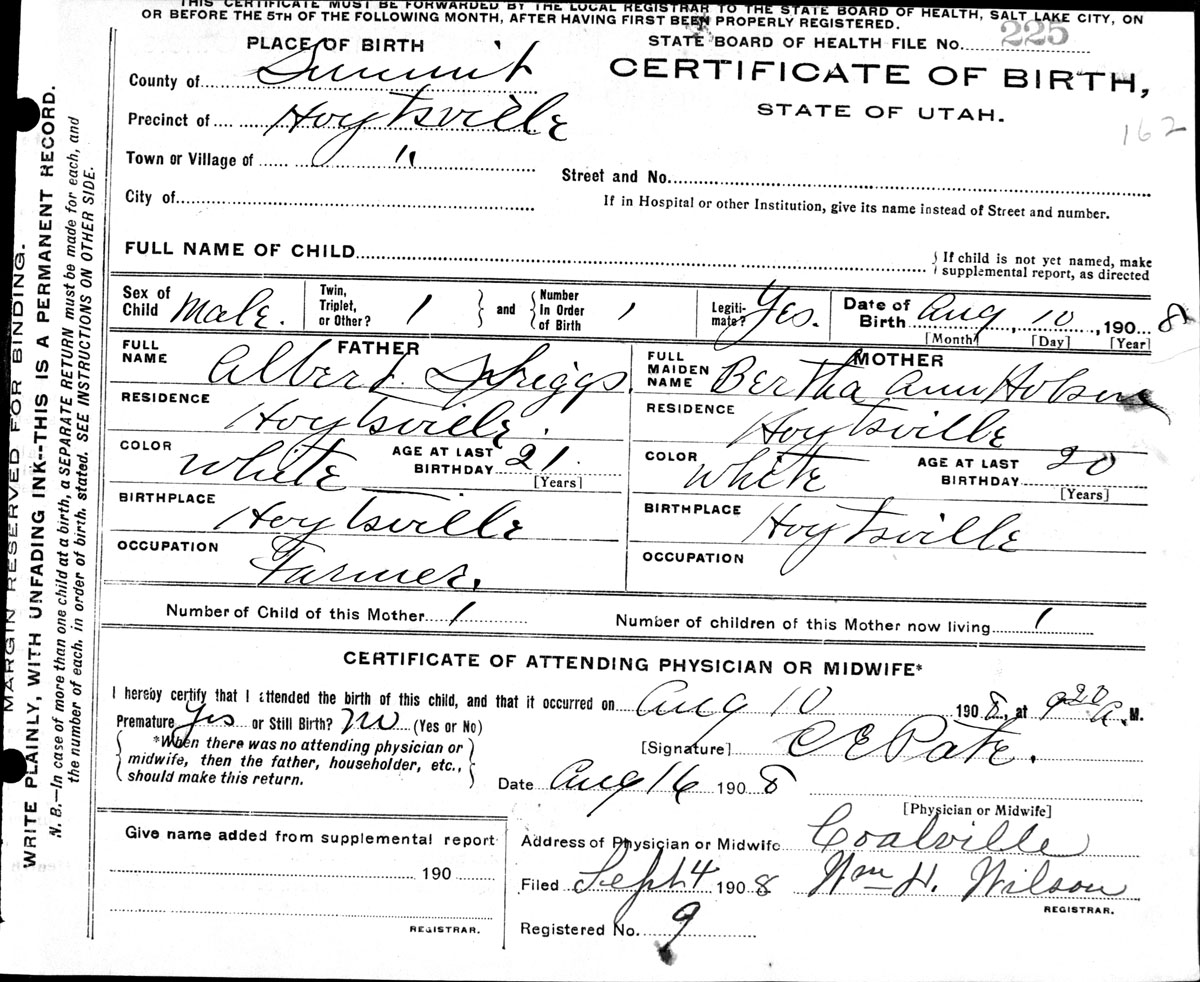 THIS CERTIFICATE MUST BE FORWARDED BY THE LOCAL REGISTRAR TO THE STATE BOARD OF HEALTH, SALT LAKE CITY, ON
OR BEFORE THE 5TH OF THE FOLLOWING MONTH, AFTER HAVING FIRST BEEN PROPERLY REGISTERED.
PLACE OF BIRTH
STATE BOARD OF HEALTH FILE No. 225
County of Summit
CERTIFICATE OF BIRTH,
STATE OF UTAH.
162
Precinct of Hoytsville
Town or Village of "
Street and No.
City of
If in Hospital or other Institution, give its name instead of Street and number.
FULL NAME OF CHILD
{ If child is not yet named, make
supplemental report, as directed
Sex of Child Male. Twin, Triplet, or Other? 1 } and { Number In Order of Birth 1 Legiti-mate? Yes. Date of Birth Aug, 10, 1908
[Month] [Day] [Year]
FATHER
MOTHER
FULL NAME Albert Spriggs.
FULL MAIDEN NAME Bertha Ann Hobson
RESIDENCE Hoytsville.
RESIDENCE Hoytsville
COLOR White AGE AT LAST BIRTHDAY 21 [Years]
COLOR White AGE AT LAST BIRTHDAY 20 [Years]
BIRTHPLACE Hoytsville
BIRTHPLACE Hoytsville
OCCUPATION Farmer.
OCCUPATION
Number of Child of this Mother 1 Number of children of this Mother now living 1
CERTIFICATE OF ATTENDING PHYSICIAN OR MIDWIFE*
I hereby certify that I attended the birth of this child, and that it occurred on Aug 10 1908, at 9 20 A. M.
Premature Yes or Still Birth? No (Yes or No)
*When there was no attending physician or
midwife, then the father, householder, etc.,
should make this return.
[Signature] C E Pate.
Date Aug 16 1908
[Physician or Midwife]
Give name added from supplemental report
190
REGISTRAR.
Address of Physician or Midwife Coalville
Filed Sept 4 1908 Wm H. Wilson
REGISTRAR.
Registered No. 9
MARGIN RESERVED FOR BINDING.
WRITE PLAINLY, WITH UNFADING INK--THIS IS A PERMANENT RECORD.
N. B.—In case of more than one child at a birth, a SEPARATE RETURN must be made for each, and
the number of each, in order of birth, stated. SEE INSTRUCTIONS ON OTHER SIDE.